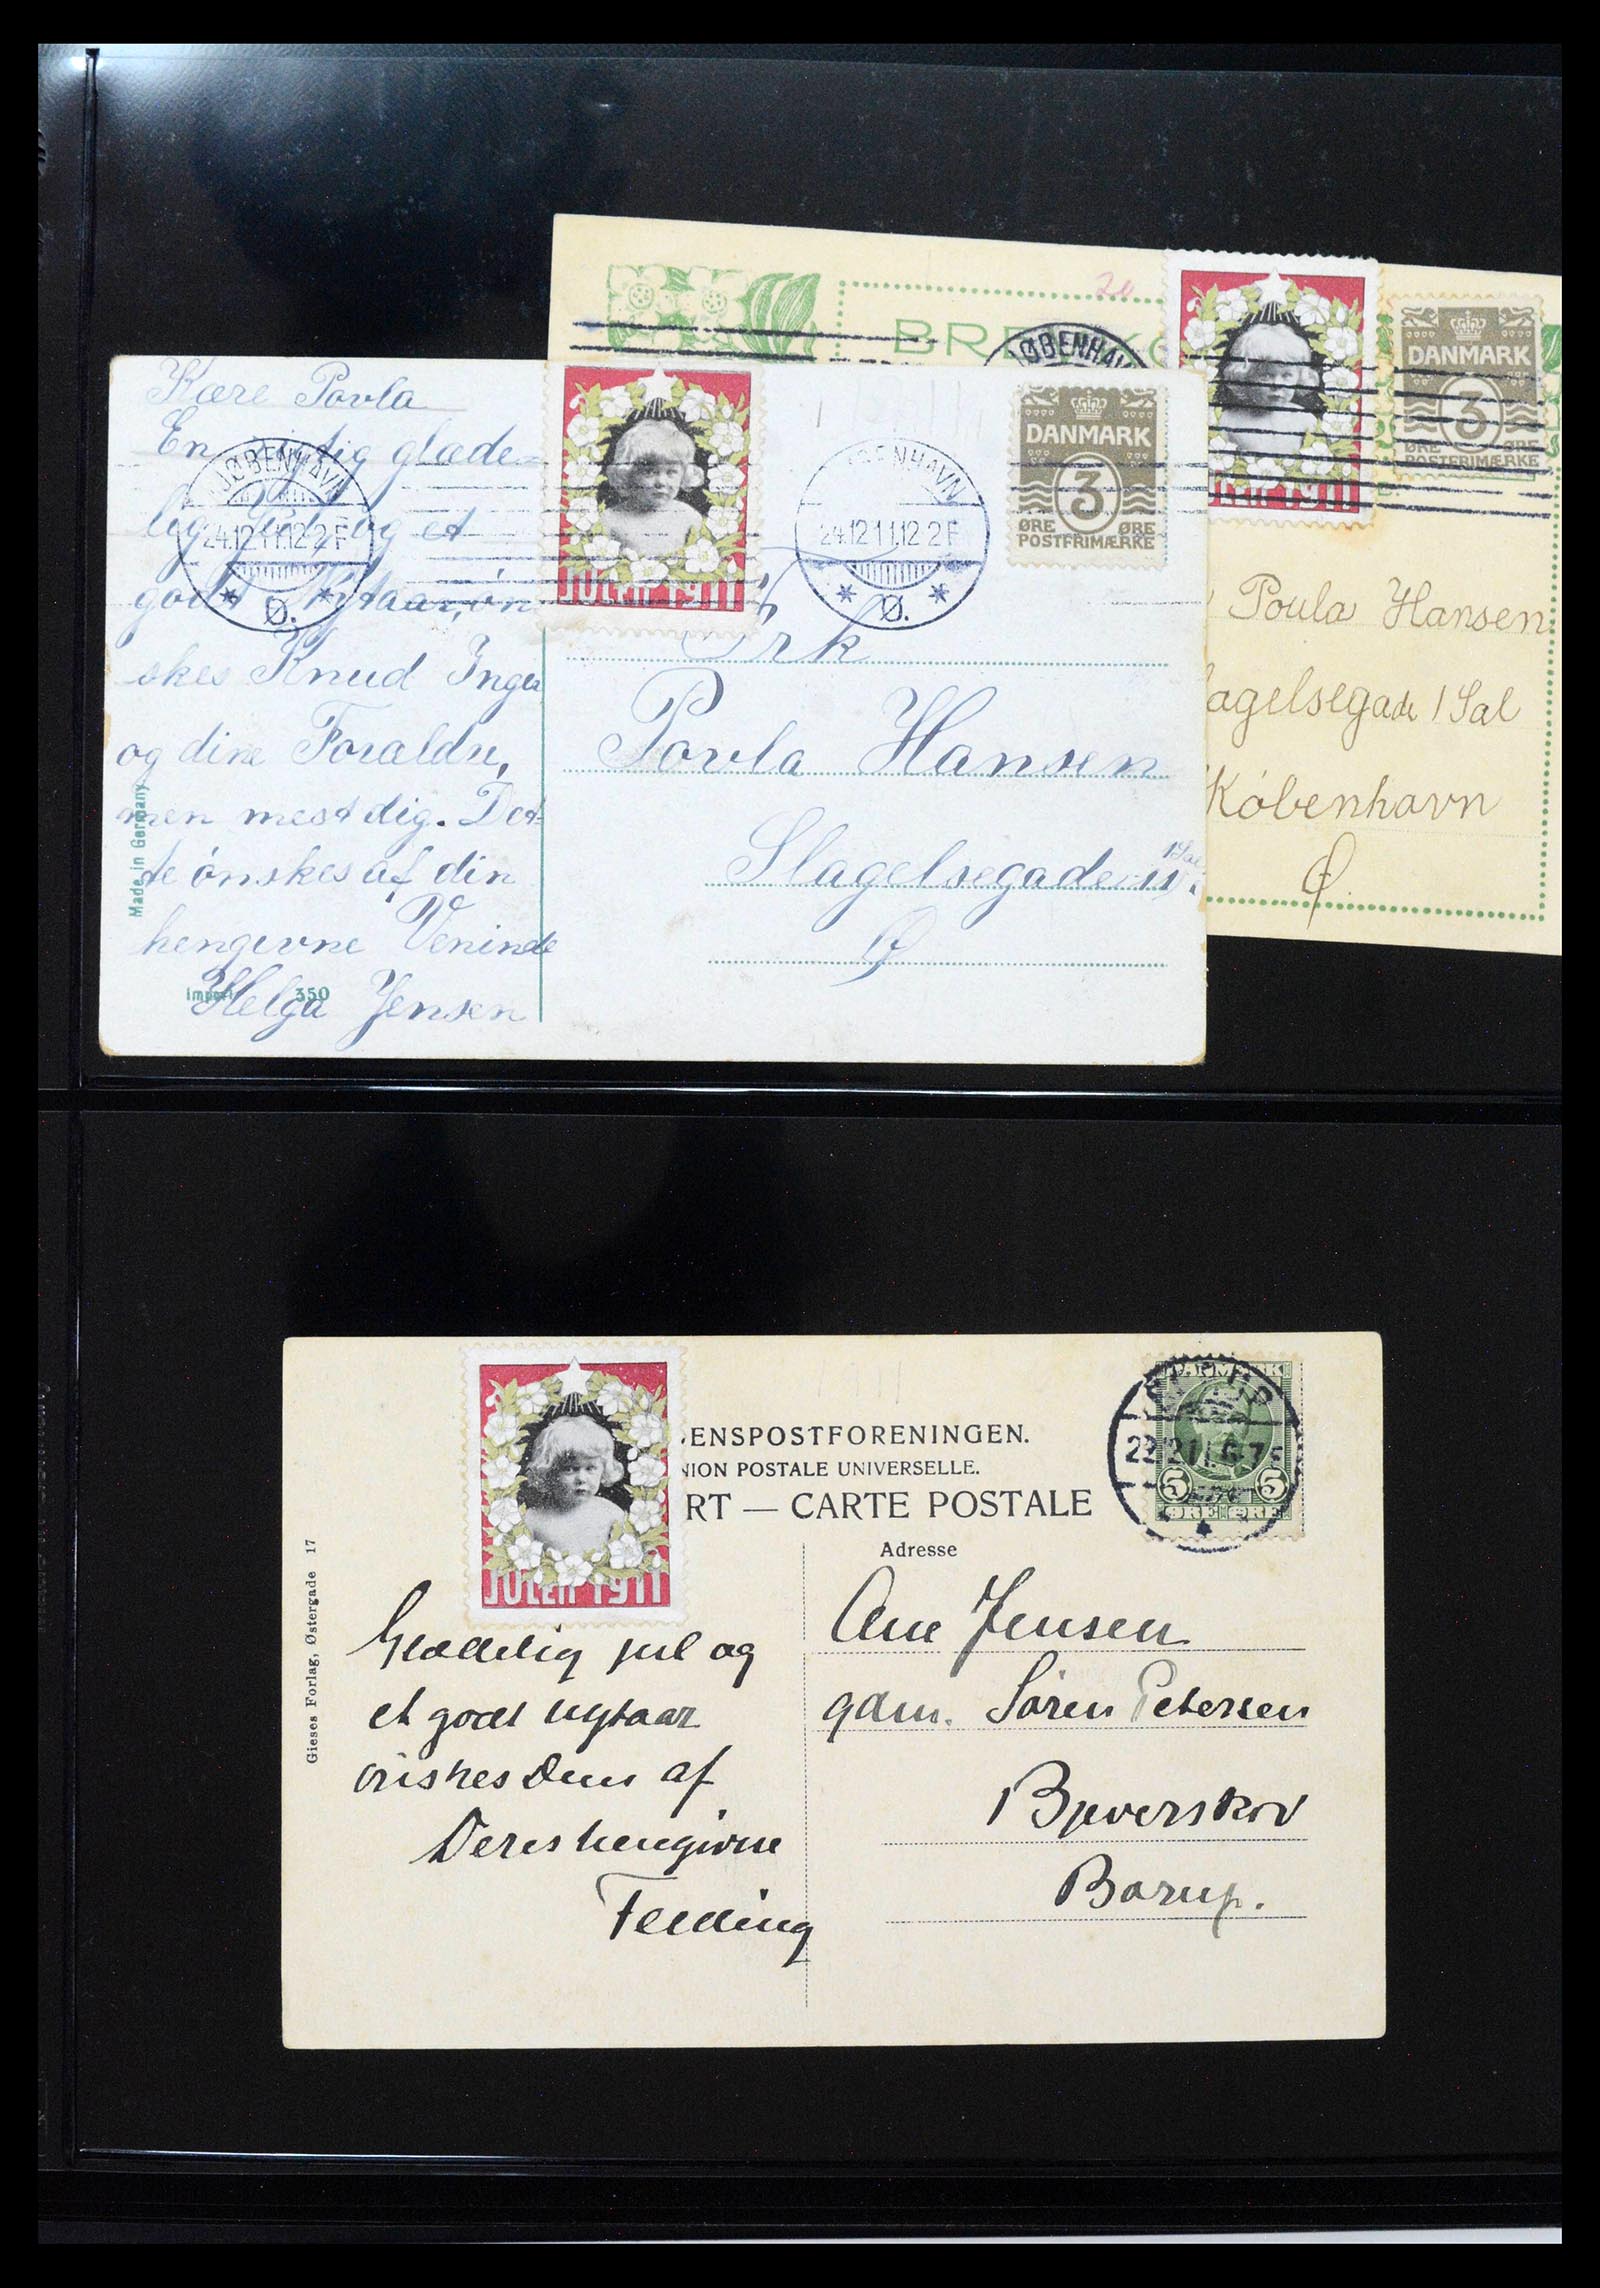 20
BREVKO
JØBENHAV
DANMARK
3
ØRE ØRE
POSTFRIMÆRKE
JULEN 1911
Poula Hansen
lagelsegade 1 Sal
København
Ø.
Kære Povla
En rigtig glæde-
lig Jul og et
godt Nytaar, ön
skes Knud Inger
og dine Forældre,
men mest dig. Det-
te ónskes af din
hengivne Veninde
Helga Jensen
Made in Germany
Import 350
KJØBENHAVN
24.12.11.12 2 F
* Ø. *
JULEN 1911
KJØBENHAVN
24.12 11.12 2 F
* Ø. *
DANMARK
3
ØRE ØRE
POSTFRIMÆRKE
Frk
Povla Hansen
Slagelsegade 11, 1 Sal
Ø
JULEN 1911
DENSPOSTFORENINGEN.
NION POSTALE UNIVERSELLE.
RT — CARTE POSTALE
DANMARK
5 5
ØRE ØRE
Adresse
Gieses Forlag, Østergade 17
Glædelig jul og
et godt nytaar
önskes Dem af
Deres hengivne
Felding
Ane Jensen
gdm. Sören Petersen
Bjeverskov
Borup.